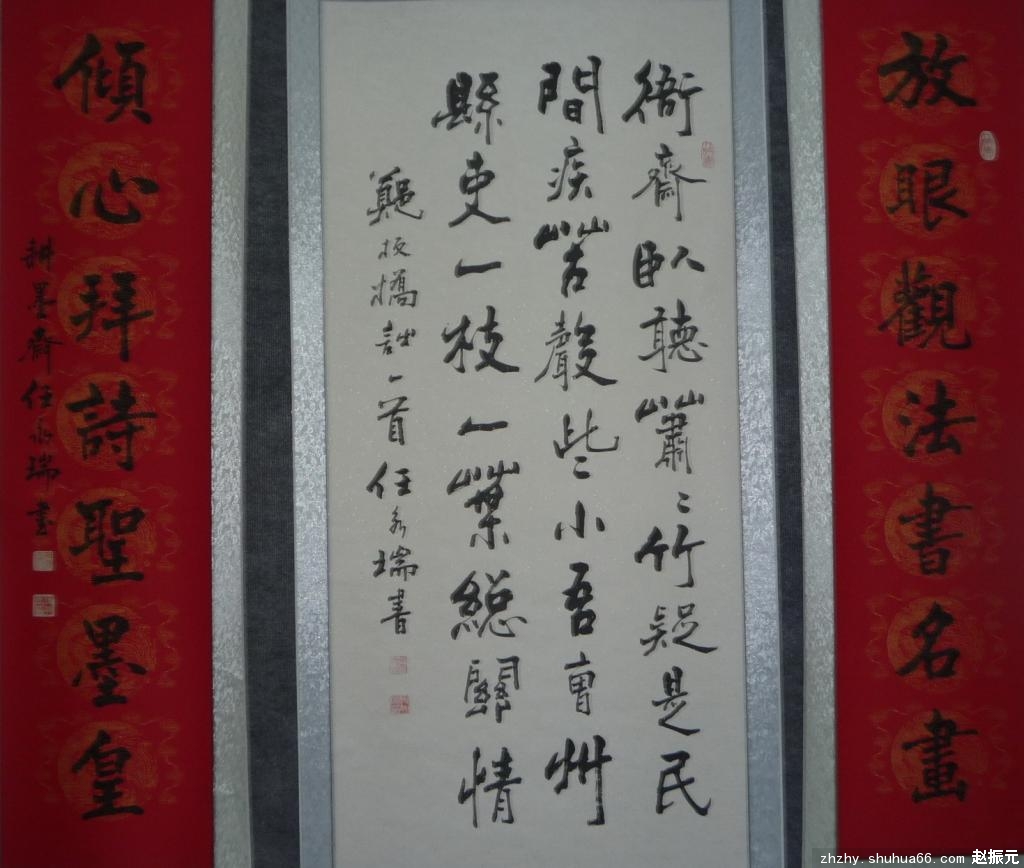 放眼觀法書名畫
衙齋臥聽蕭〻竹疑是民
間疾苦聲些小吾曹州
縣吏一枝一葉總關情
鄭板橋詩一首任永瑞書
傾心拜詩聖墨皇
耕墨齋任永瑞書
zhzhy.shuhua66.com 赵振元